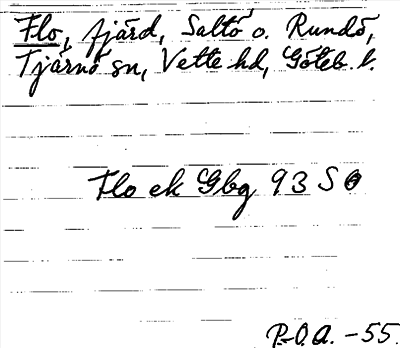 Flo, fjärd, Saltö o. Rundö,
Tjärnö sn, Vette hd, Göteb. l.
Flo ek Gbg 93 SO
P.O.A. -55.